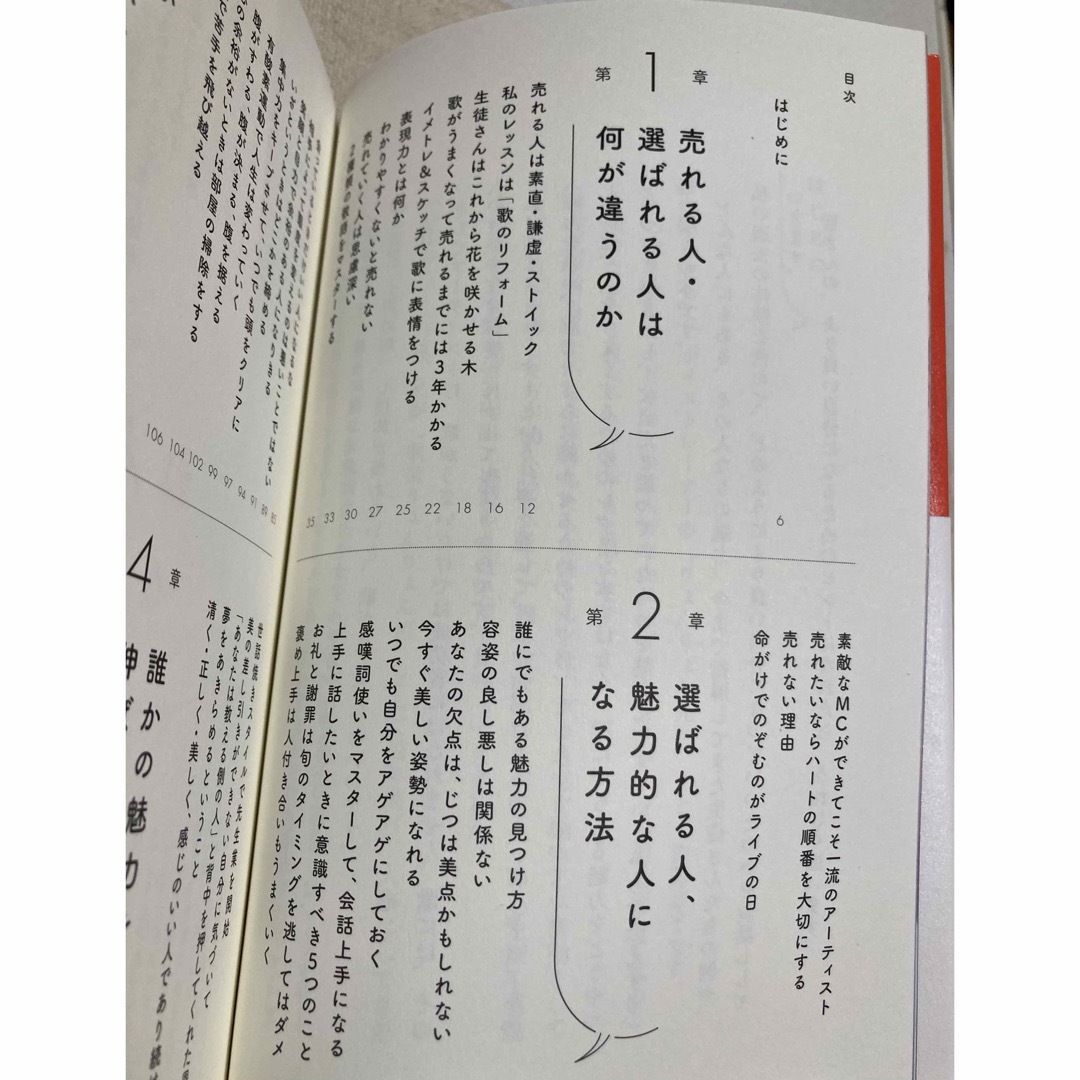 目次
はじめに
6
第1章
売れる人・
選ばれる人は
何が違うのか
売れる人は素直・謙虚・ストイック
私のレッスンは「歌のリフォーム」
生徒さんはこれから花を咲かせる木
歌がうまくなって売れるまでには3年かかる
イメトレ&スケッチで歌に表情をつける
表現力とは何か
わかりやすくないと売れない
売れていく人は思慮深い
2種類の歌唱をマスターする
12
16
18
22
25
27
30
33
35
素敵なMCができてこそ一流のアーティスト
売れたいならハートの順番を大切にする
売れない理由
命がけでのぞむのがライブの日
第2章
選ばれる人、
魅力的な人に
なる方法
誰にでもある魅力の見つけ方
容姿の良し悪しは関係ない
あなたの欠点は、じつは美点かもしれない
今すぐ美しい姿勢になれる
いつでも自分をアゲアゲにしておく
感嘆詞使いをマスターして、会話上手になる
上手に話したいときに意識すべき5つのこと
お礼と謝罪は旬のタイミングを逃してはダメ
褒め上手は人付き合いもうまくいく
いざというときはどこかを締める
集中力をキープさせていつでも頭をクリアに
有酸素運動で人生は変わっていく
腹がすわる、腹が決まる、腹を据える
の余裕がないときは部屋の掃除をする
で苦手を飛び越える
85
89
91
94
97
99
102
104
106
4章
誰かの魅力
世話焼きスタイルで先生業を開始
美の差し引きができない自分に気づいて
「あなたは教える側の人」と背中を押してくれた
夢をあきらめるということ
清く・正しく・美しく、感じのいい人であり続